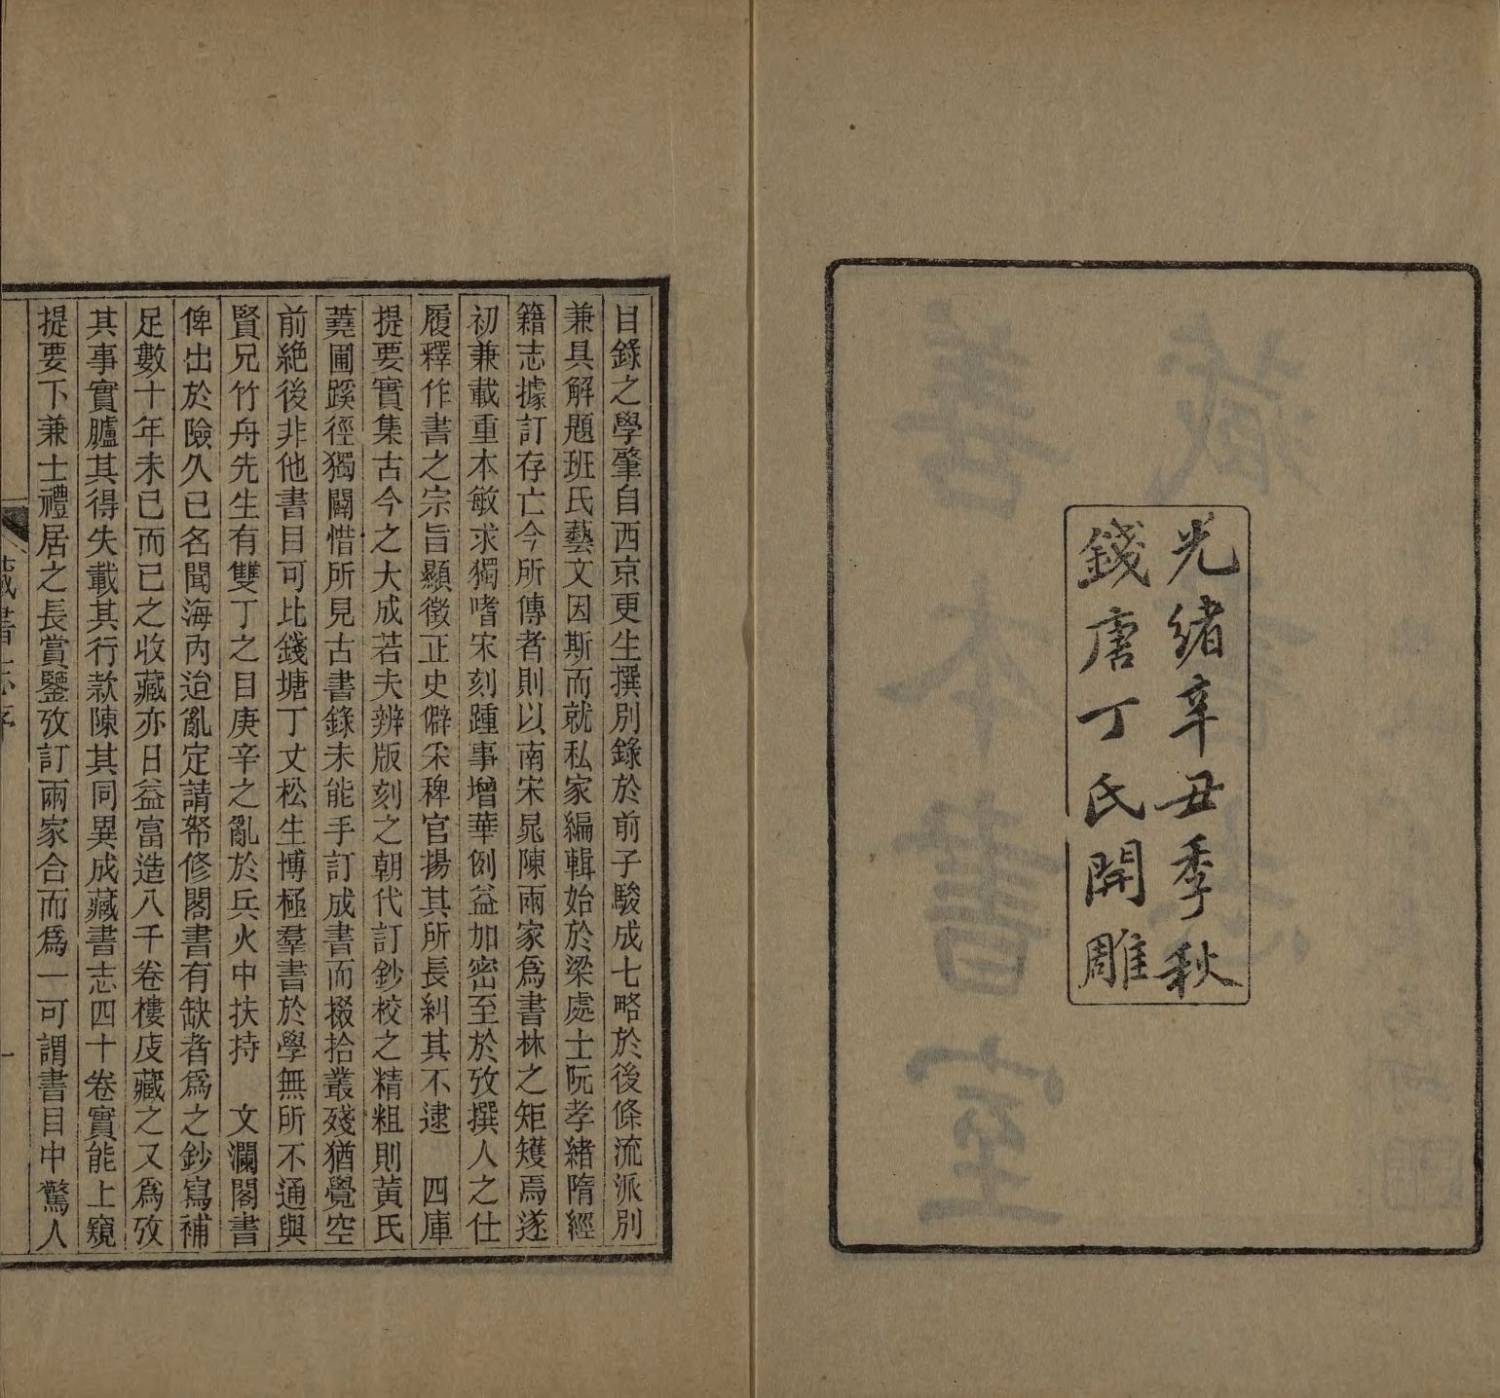 光緒辛丑季秋
錢唐丁氏開雕
目錄之學肇自西京更生撰別錄於前子駿成七略於後條流派別
兼具解題班氏藝文因斯而就私家編輯始於梁處士阮孝緒隋經
籍志據訂存亡今所傳者則以南宋晁陳兩家爲書林之矩矱焉遂
初兼載重本敏求獨嗜宋刻踵事增華例益加密至於攷撰人之仕
履釋作書之宗旨顯徵正史僻采稗官揚其所長糾其不逮　四庫
提要實集古今之大成若夫辨版刻之朝代訂鈔校之精粗則黃氏
蕘圃蹊徑獨闢惜所見古書錄未能手訂成書而掇拾叢殘猶覺空
前絶後非他書目可比錢塘丁丈松生博極羣書於學無所不通與
賢兄竹舟先生有雙丁之目庚辛之亂於兵火中扶持　文瀾閣書
俾出於險久已名聞海內迨亂定請帑修閣書有缺者爲之鈔寫補
足數十年未已而己之收藏亦日益富造八千卷樓庋藏之又爲攷
其事實臚其得失載其行款陳其同異成藏書志四十卷實能上窺
提要下兼士禮居之長賞鑒攷訂兩家合而爲一可謂書目中驚人
藏書志序
一